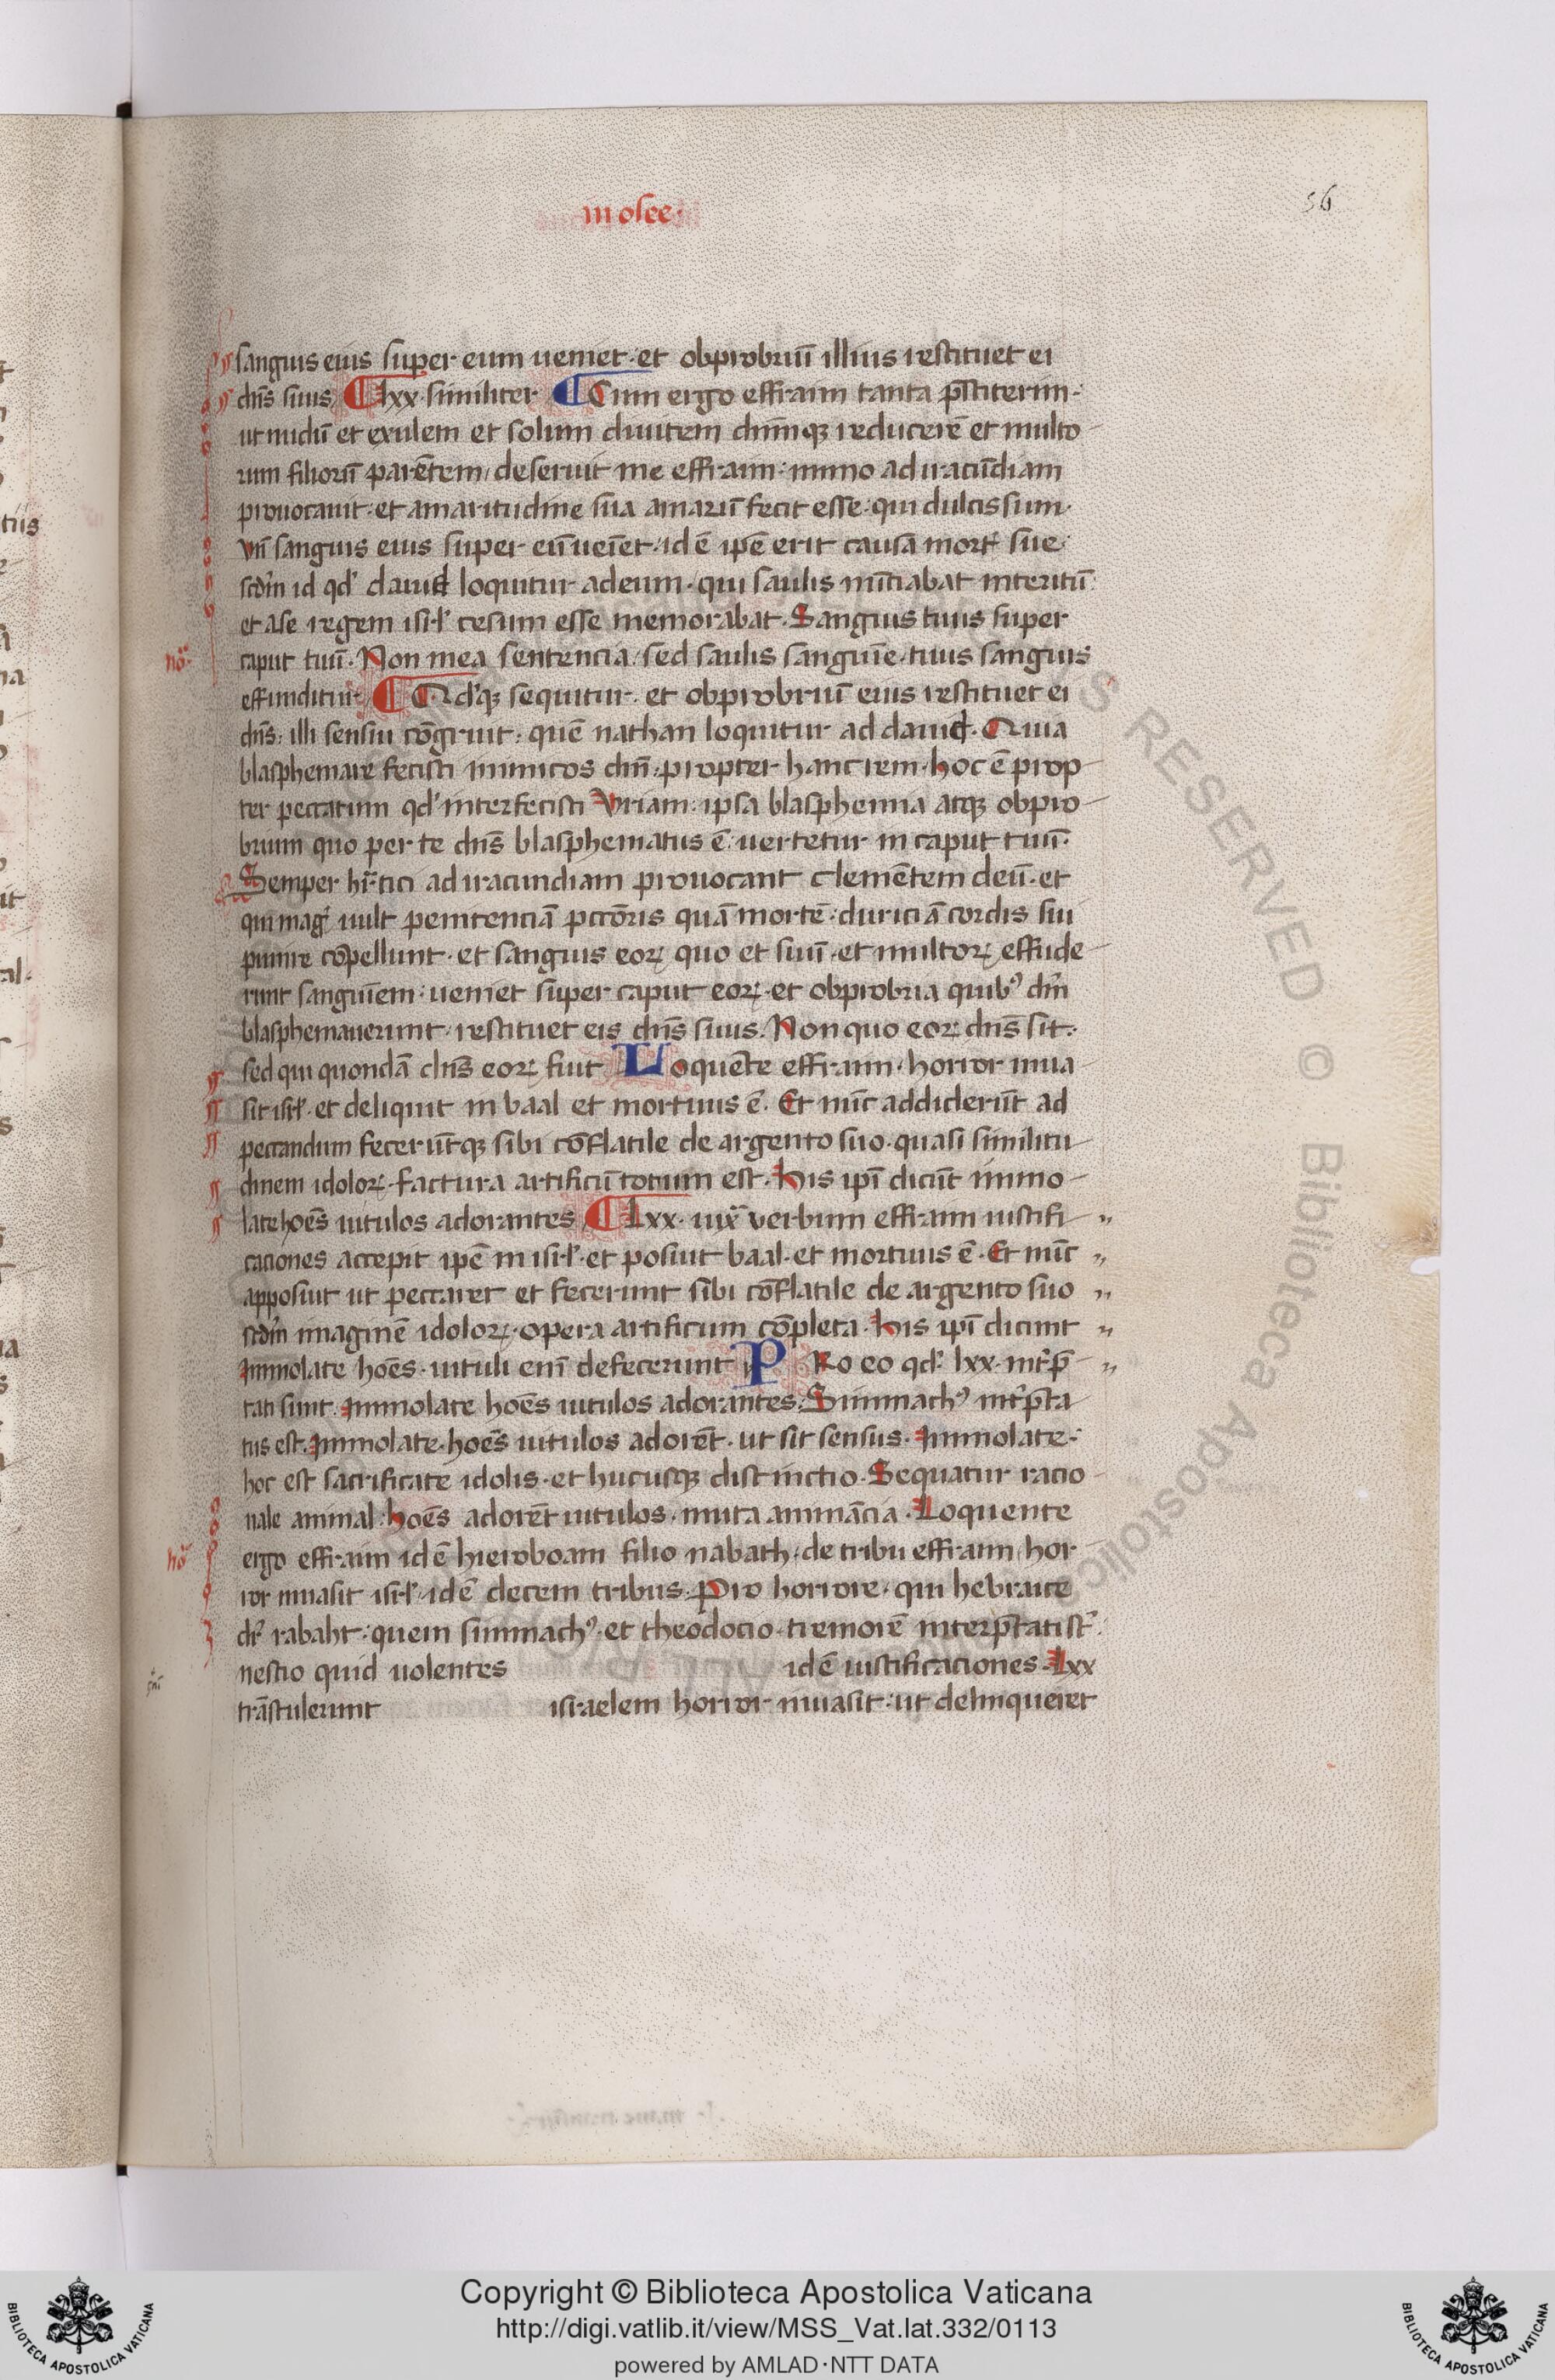 in osee·
56
sanguis eius super eum ueniet· et obprobriū illius restituet ei
dn̄s suus lxx· similiter Cum ergo effraim tanta p̄stiterim·
ut nudū et exulem et solum diuitem dn̄mqꝫ reducerē et multo
rum filiorū parētem, deseruit me effraim· immo ad iracūdiam
prouocauit· et amaritudine sua amarū fecit esse· qui dulcis sum·
vn̄ sanguis eius super eū ueniet· id ē ip̄e erit causa mort̉ sue·
scd̄m id qd̓ dauid loquitur ad eum· qui saulis nūtiabat interitū
et a se regem isrl̓ cesum esse memorabat. Sanguis tuus super
nō·
caput tuū· Non mea sentencia, sed saulis sanguīe· tuus sanguis
effunditur Qd̓qꝫ sequitur· et obprobriū eius restituet ei
dn̄s· illi sensui cōgruit· quē nathan loquitur ad dauid. Quia
blasphemare fecisti inimicos dn̄i· propter hanc rem· hoc ē prop
ter peccatum qd̓ interfecisti Vriam· ipsa blasphemia atqꝫ obpro
brium quo per te dn̄s blasphematus ē· uertetur in caput tuū·
Semper hr̄tici ad iracundiam prouocant clemētem deū· et
qui mag̓ uult penitenciā pctōris quā mortē· duriciā cordis sui
punire cōpellunt· et sanguis eoꝝ quo et suū· et multoꝝ effude
runt sanguīem· ueniet super caput eoꝝ· et obprobria quibꝰ dn̄m
blasphemauerunt· restituet eis dn̄s suus. Non quo eoꝝ dn̄s sit·
sed qui quondā dn̄s eoꝝ fuit Loquēte effraim· horror inua
sit isrl̓· et deliquit in baal et mortuus ē. Et nūc addiderūt ad
peccandum feceruntqꝫ sibi cōflatile de argento suo· quasi similitu
dinem idoloꝝ· factura artificū totum est. His ip̄i dicūt immo
late hoēs uitulos adorantes Lxx· iux̄ verbum effraim iustifi
caciones accepit ip̄e in isrl̓· et posuit baal· et mortuus ē· Et nūc
apposuit ut peccaret et fecerunt sibi cōflatile de argento suo
scd̄m imaginē idoloꝝ· opera artificum cōpleta. His ip̄i dicunt
Immolate hoēs· uituli eni defecerunt PRo eo qd̓ lxx· int̓p̄
tati sunt. Immolate hoēs uitulos adorantes. Simmachꝰ int̓p̄ta
tus est. Immolate· hoēs uitulos adorēt· ut sit sensus. Immolate·
hoc est sacrificate idolis· et hucusqꝫ distinctio. Sequatur racio
nale animal· hoēs adorēt uitulos· muta animācia. Loquente
nō
ergo effraim id ē hieroboam filio nabath· de tribu effraim· hor
ror inuasit isrl̓· id ē decem tribus. Pro horrore· qui hebraice
dr̄ rabaht· quem simmachꝰ· et theodocio· tremorē interp̄tati st̄·
nescio quid uolentes id ē iustificaciones. Lxx
trāstulerunt israelem horror inuasit· ut delinqueret
Copyright © Biblioteca Apostolica Vaticana
http://digi.vatlib.it/view/MSS_Vat.lat.332/0113
powered by AMLAD·NTT DATA